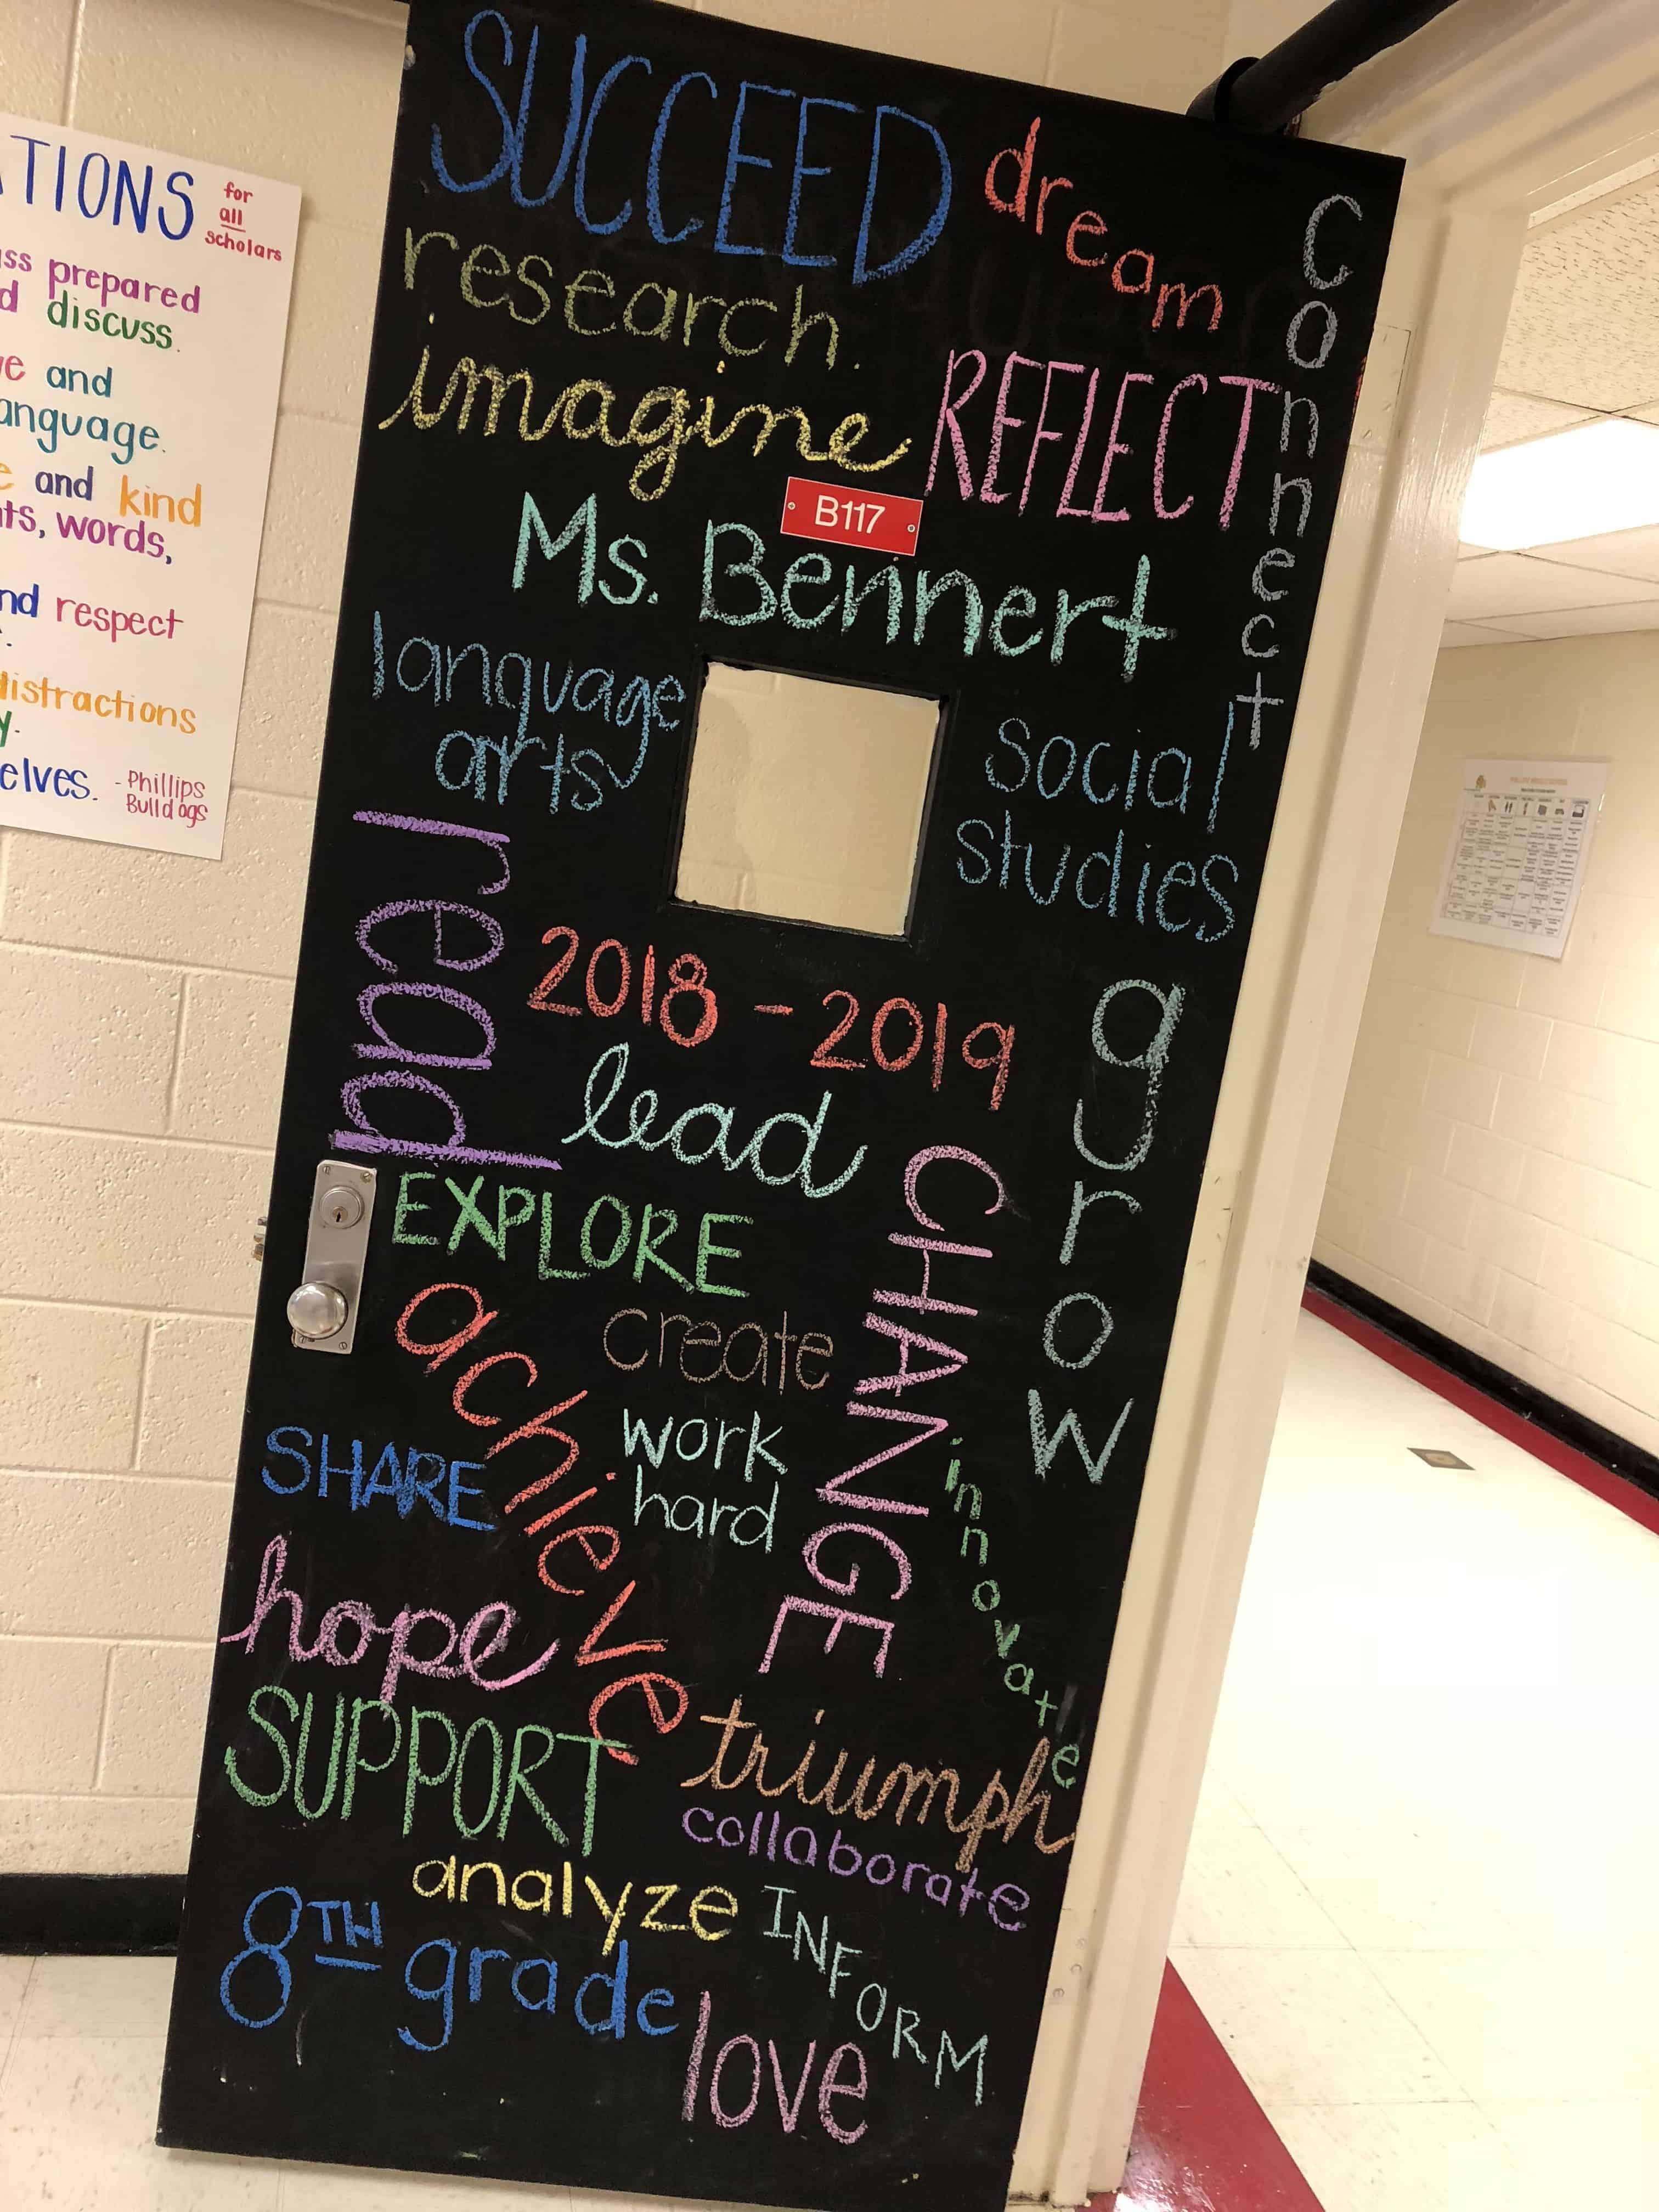 TIONS for
all
scholars
prepared
discuss.
and
language.
and kind
words,
respect
distractions
elves. - Phillips
Bulldogs
SUCCEED
dream
connect
research.
imagine
REFLECT
B117
Ms. Bennert
language
arts
social
studies
read
2018 - 2019
grow
lead
CHANGE
EXPLORE
achieve
create
work
hard
SHARE
innovate
hope
SUPPORT
triumph
collaborate
analyze
INFORM
8TH grade
love